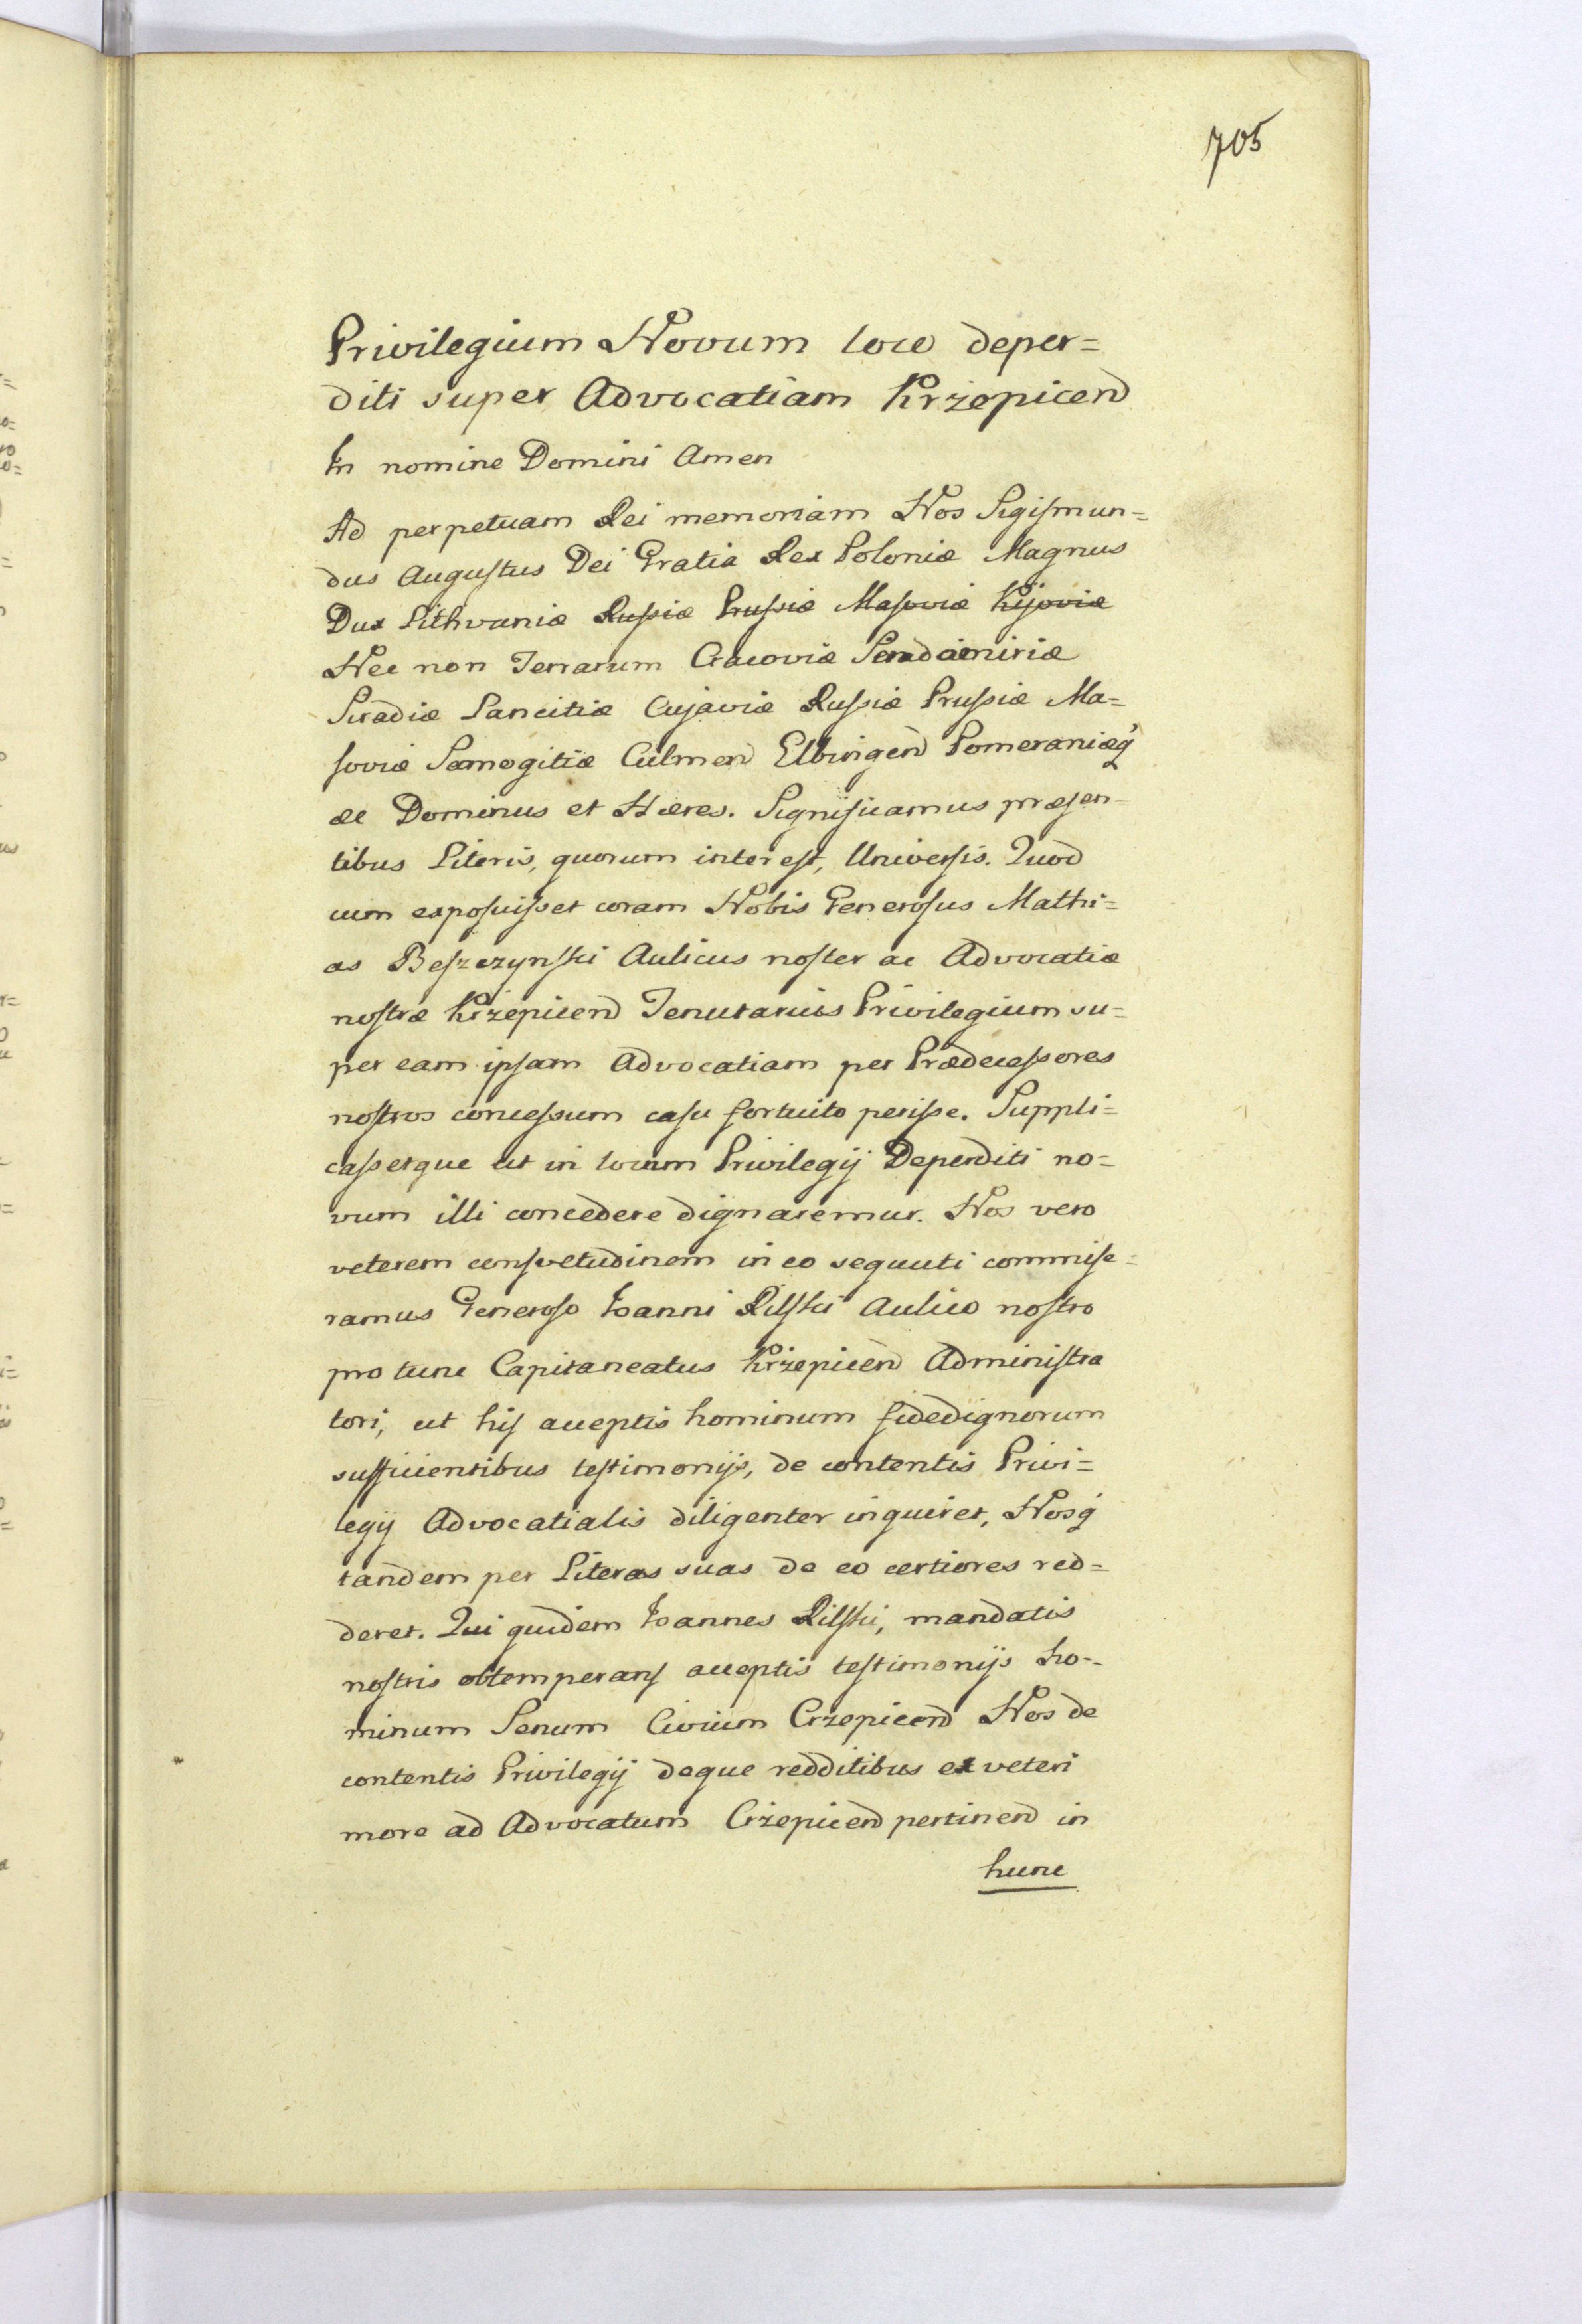 705
Privilegium Novum loco deper=
diti super Advocatiam Krzepicen̄
In nomine Domini Amen
Ad perpetuam Rei memoriam Nos Sigiſmun=
dus Auguſtus Dei Gratia Rex Poloniæ Magnus
Dux Lithvaniæ Ruſsiæ Pruſsiæ Maſoviæ Kijoviæ
Nec non Terrarum Cracoviæ Sendomiriæ
Siradiæ Lancitiæ Cujaviæ Ruſsiæ Pruſsiæ Ma=
ſoviæ Samogitiæ Culmen̄ Elbingen̄ Pomeraniæq́
ac Dominus et Hæres. Significamus præſen=
tibus Literis, quorum intereſt, Univerſis. Quod
cum expoſuiſset coram Nobis Generoſus Matthi=
as Beſzczynſki Aulicus noſter ac Advocatiæ
noſtræ Krzepicen̄ Tenutarius Privilegium su=
per eam ipſam Advocatiam per Prædeceſsores
noſtros conceſsum caſu fortuito periſse. Suppli=
caſsetque ut in locum Privilegij Deperditi no=
vum illi concedere dignaremur. Nos vero
veterem conſvetudinem in eo sequuti commiſe=
ramus Generoſo Joanni Rilſki Aulico noſtro
pro tunc Capitaneatus Krzepicen̄ Adminiſtra
tori, ut hiſ acceptis hominum fidedignorum
sufficientibus teſtimonijs, de contentis Privi=
legij Advocatialis diligenter inquiret, Nosq́
tandem per Literas suas de eo certiores red=
deret. Qui quidem Joannes Rilſki, mandatis
noſtris obtemperanſ acceptis teſtimonijs ho=
minum Senum Civium Crzepicen̄ Nos de
contentis Privilegij deque redditibus ex veteri
more ad Advocatum Crzepicen̄ pertinen̄ in
hunc